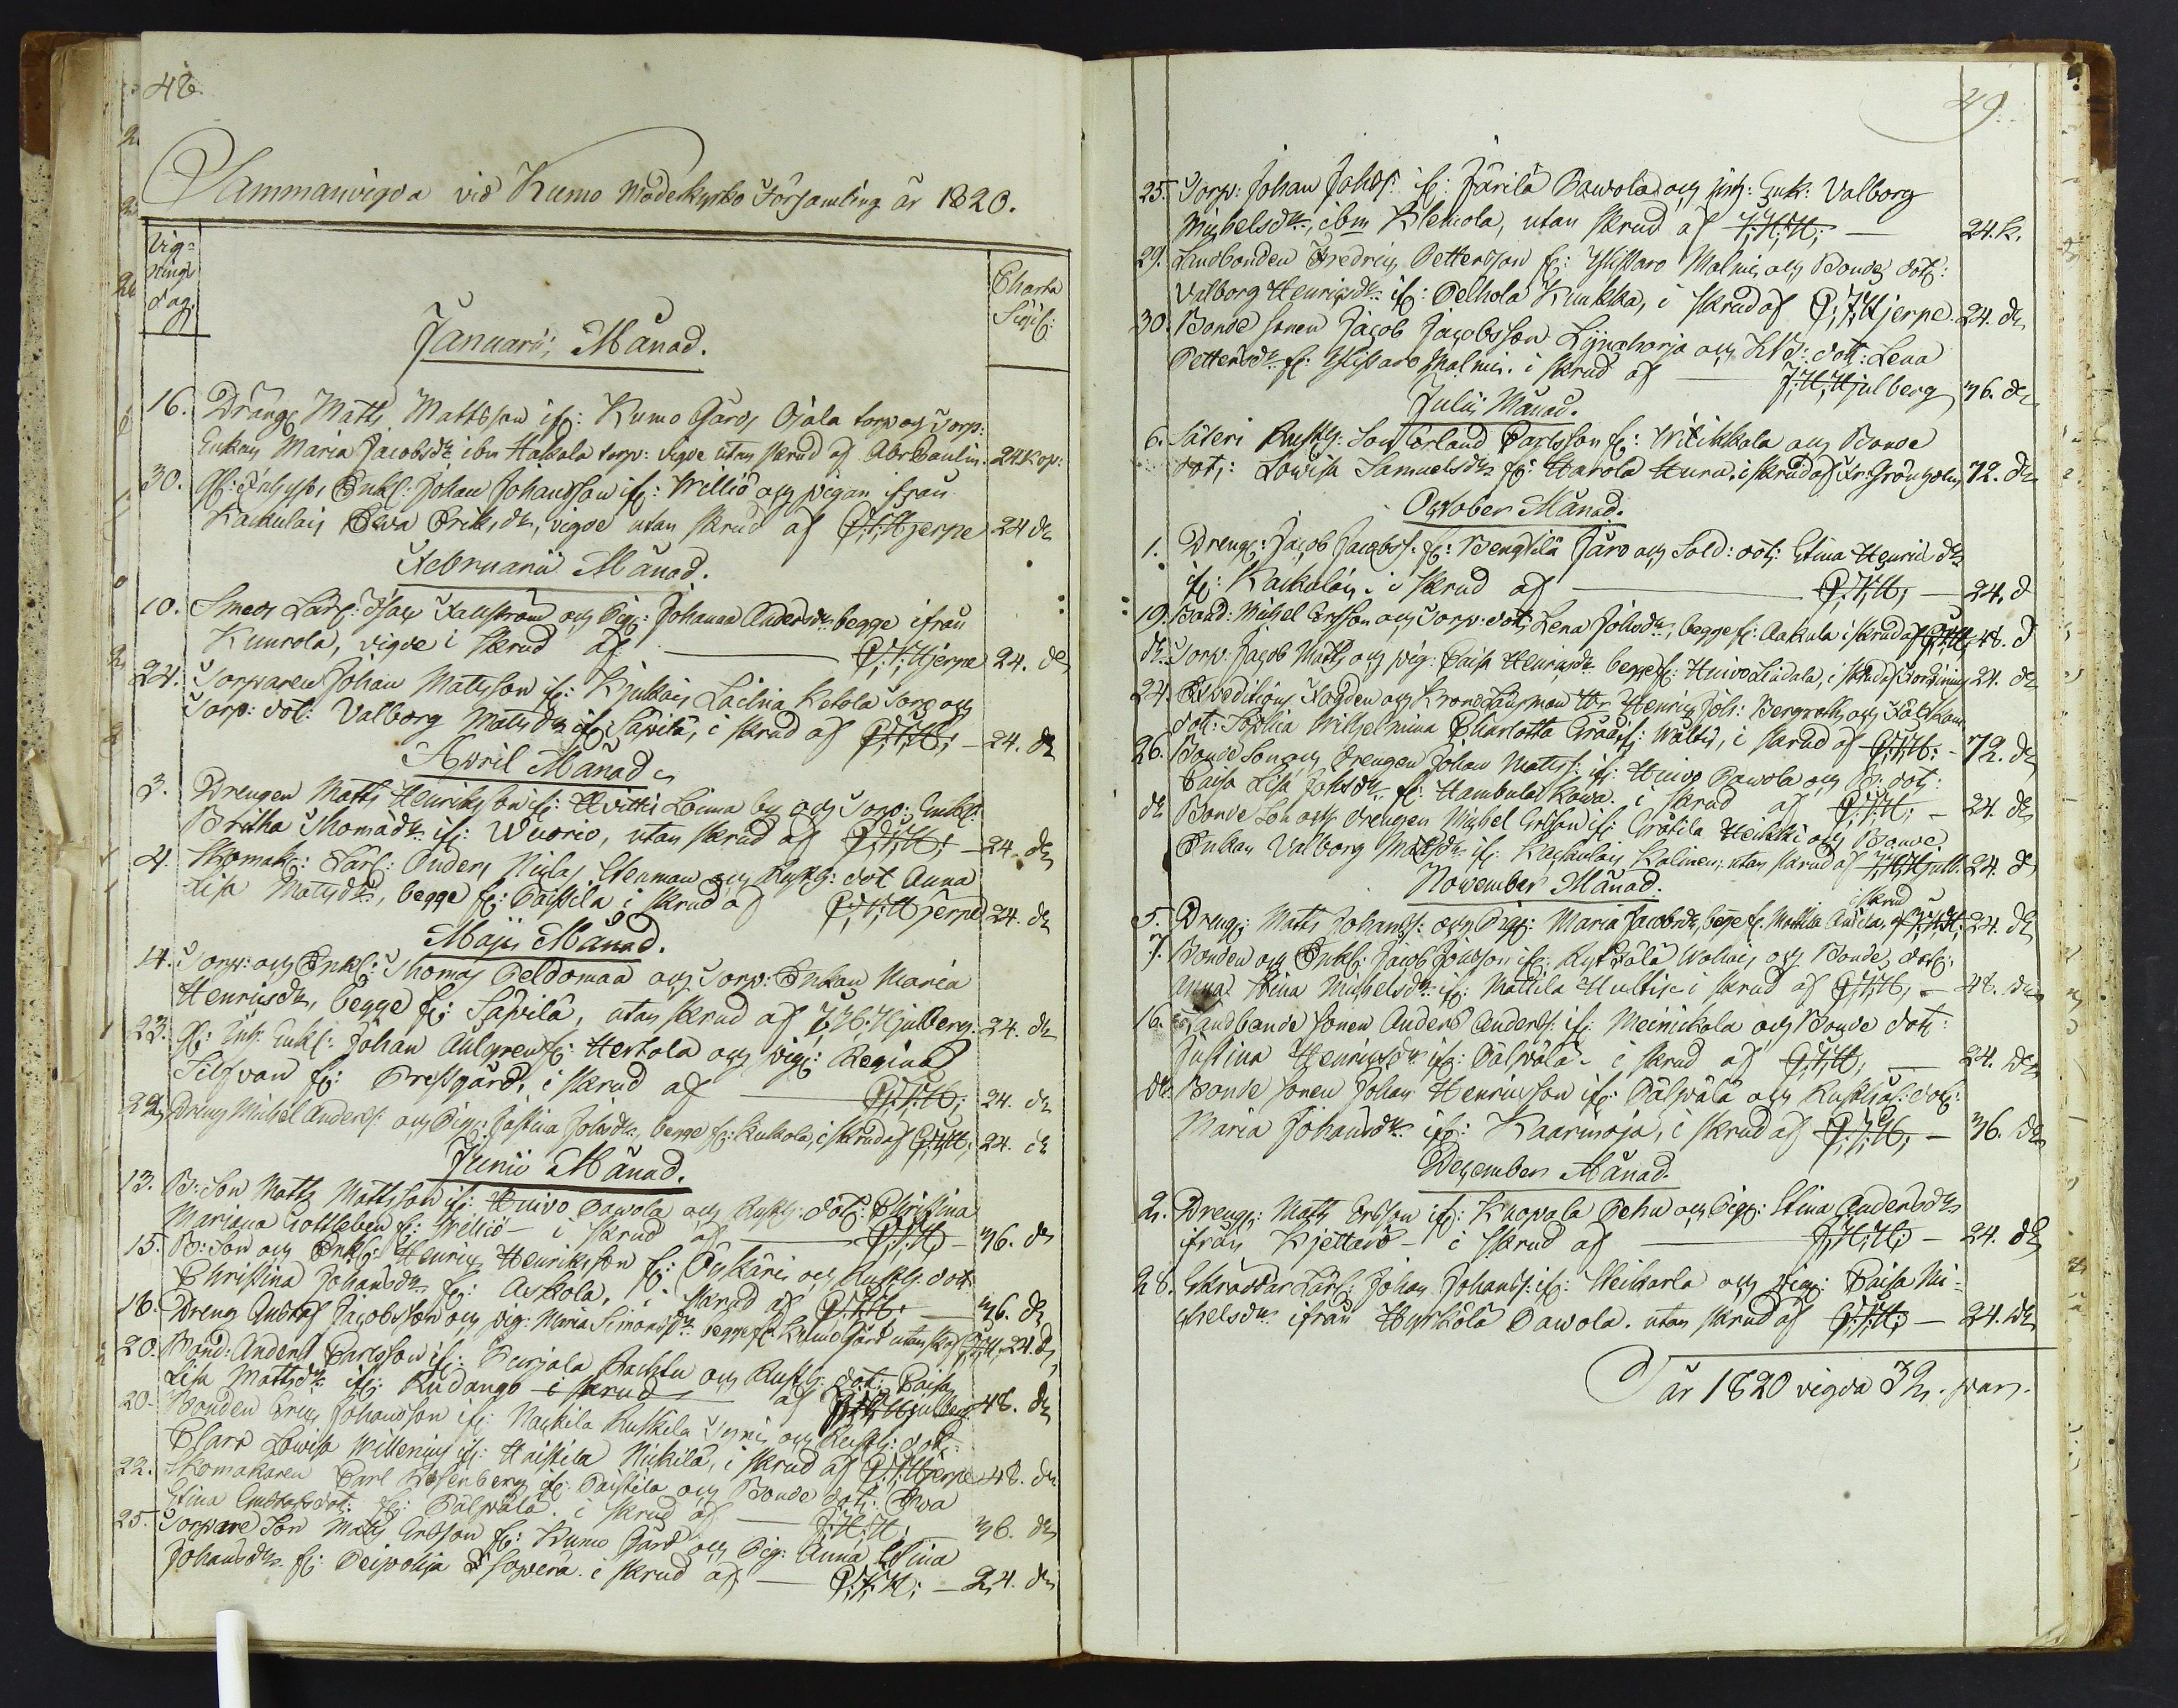 48.
Sammanvigda vid Kumo Moderkyrko Församling år 1820.
Vig=
nings
dag.
Charta
Sigil:
Januarii Månad.
16. Drängen Matts Mattsson if: Kumo Gårds Ojala torp och Torp:
Enkan Maria Jacobsdr ibm Hakola torp: vigde utan skrud af Abr Paulin. 24 Kop:
30. Johan Johansson if: Villiö och pigan ifrån
Kackulais Ewa Eriksdr, vigde utan skrud af P.J.Hjerpe 24 do
Februarii Månad.
10. Smeds Lärl: Isac Fallström och Pig: Johanna Andersdr begge ifrån
Kuurola, vigde i skrud af P.J.Hjerpe 24. do
24. Torparen Johan Mattsson if: Kjulkais Laciria Ketola Torp och
Torp: dot: Valborg Mattsdr if: Säpilä, i skrud af P.J.H; 24. do
April Månad
3. Drengen Matts Henriksson if: Hvitti Loima by och Torp: Enkl:
Britha Thomædr if: Wuorio, utan skrud af P.J.H; 24. do
4. Skomak: Lärl: Anders Niclas Stenman och Rusth: dot Anna
Lisa Mattsdr, begge f: Paistila i skrud af P.J.Hjerpe 24. do
Maji Månad.
14. Torp: och Enkl: Thomas Peldomaa och Torp: Enkan Maria
Henricsdr, begge f: Säpilä, utan skrud af J.H.Hjulberg. 24. do
23. Enkl: Johan Aulgren f: Hertola och pig: Regina
Silfvan f: Prestgård, i skrud af P.J.H; 24. do
Dreng Michel Anderss: och Pig: Justina Johsdr, begge f: Kukola, i skrud af P.J.H; 24. do
Junii Månad.
13. B: Son Matts Mattsson if: Huivo Pawola och Rusth: dot: Christina
Mariana Gottleben f: Villiö i skrud af P.J.H 36. do
15. B: Son och Enkl: Henric Henriksson f: och Rusth: dot:
Christina Johansdr f: Askola, i skrud af P.J.H; 36. do
18. Dreng Gustaf Jacobsson och pig: Maria Simonsdr begge f: Kumo Gård utan sk: af P.J.H, 24. do
20. Bond: Anders Carlsson if: Purjala Pachtu och Rusth: dot: Caisa
Lisa Mattsdr if: Rudango i skrud af J.H.Hjulberg 48. do
20. Bonden Eric Johansson if: Nackila Ruskila och Rusth: dot:
Clara Lowisa Willenius if: Haistila Nickilä, i skrud af P.J.Hjerpe 48. do
22. Skomakaren Carl Rosenberg if: Paistila och Bonde dot: Ewa
Stina Gustafsdot: f: Pälpälä. i skrud af J.H.H; 36. do
25. Torpare Son Matts Ersson f: Kumo Gård och Pig: Anna Stina
Johansdr f: Peipohja i skrud af P.J.H; 24. do
49.
25. Torp: Johan Johss: if: Järilä Pawola och Enk: Valborg
Michelsdr, ibm Klemola, utan skrud af J.H.H; 24. K.
29. Landbonden Fredric Pettersson f: Ylistaro Malmi, och Bonde dot:
Valborg Henricsdr if: Pelhola Kuukka, i skrud af P.J.Hjerpe. 24. do
30. Bonde sonen Jacob Jacobsson Lyyncharja och dot: Lena
Pettersdr f: Ylistaro Malmi. i skrud af J.H.Hjulberg 36. do
Julii Månad.
6. Säteri Rusth: Son Erland Carlsson f: Witikkala och Bonde
dot: Lowisa Samuelsdr f: Harola Huru, i skrud af Fr: Gröngolm 72. do
October Månad.
1. Dreng: Jacob Jacobss: f: Bengtilä Järo och Sold: dot: Stina Henricsdr
if: Kackulais. i skrud af P.J.H; 24. d
19. Bond: Michel Ersson och Torp: dot: Lena Johsdr, begge f: Aakula i skrud af P.J.H; 48. d
do Torp: Jacob Matts: och pig: Caisa Henricsdr begge f: Huivo Lindala, i skrud af 24. do
24. Expeditions Fogden och Krono Länsman Hr Henric Joh: Bergroth, och
dot: Sophia Wilhelmina Charlotta if: Wältti, i skrud af P.J.H; 72. do
26. Bonde Son och drengen Johan Mattss: if: Huivo Pawola och B: dot:
Caisa Lisa Johsdr f: Hambula Kowa. i skrud af P.J.H; 24. do
do Bonde Son och drengen Michel Ersson if: Gråtila Heikki och Bonde
Enkan Valborg Mattsdr if: Kackulais Kalinen, utan skrud af J.H.Hjulb: 24. do
November Månad.
5. Dreng: Matts Johanss: och Pig: Maria Jacobsdr, begge f: Mattila Anttila, i skrud af J.H.H; 24. do
7. Bonden och Enkl: Jacob Jönsson if: Kyttälä och Bonde dot:
Anna Stina Michelsdr if: Mattila Hultis i skrud af P.J.H; 48. do
16. Landbonde sonen Anders Anderss: if: Meinickola och Bonde dot:
Justina Henricsdr if: Pälpälä. i skrud af P.J.H; 24. do
do Bonde sonen Johan Henricsson if: Pälpälä och Rusth: dot:
Maria Johansdr if: Kaarinoja, i skrud af P.J.H; 36. do
December Månad.
2. Dreng: Matts Ersson if: Kuopala Pehu och Pig: Stina Andersdr
ifrån Kjettarö i skrud af J.H.H; 24. do
28. Skräddar Lärl: Johan Johanss: if: Heikarla och pig: Caisa Mi-
chelsdr ifrån Hyrköla Pawola. utan skrud af P.J.H; 24. do
år 1820 vigda 32. par.